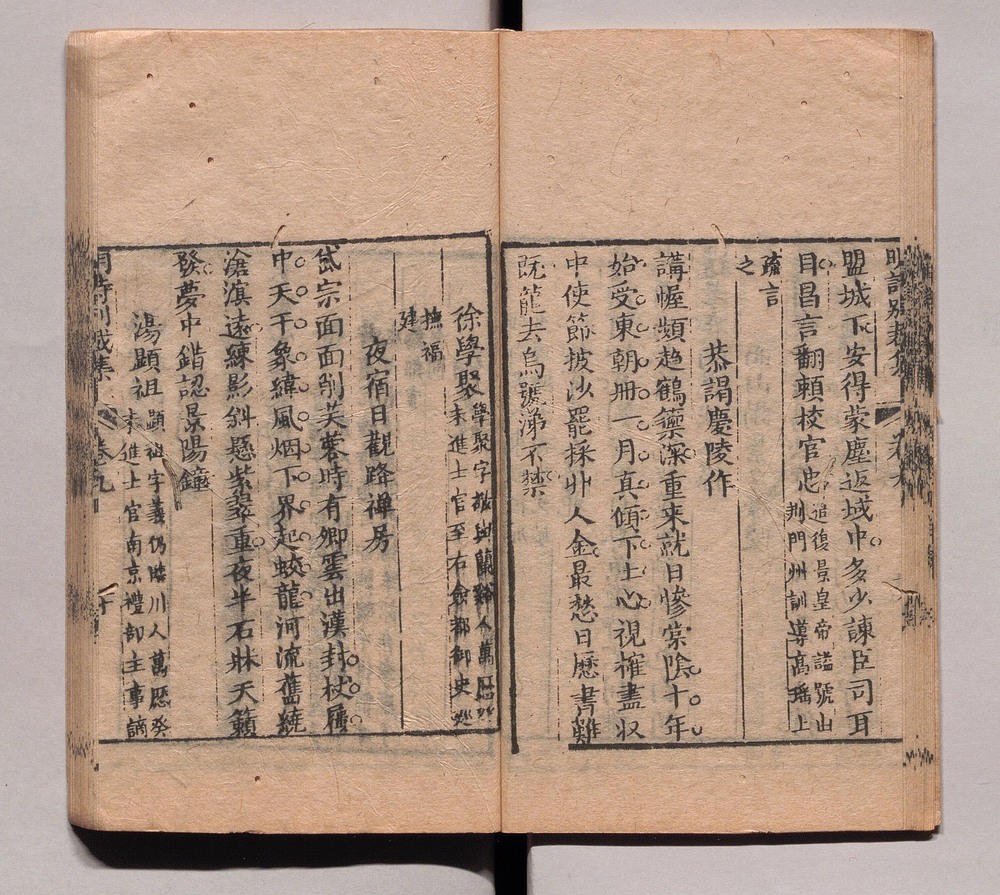 明詩別裁集 卷九
盟城下安得蒙塵返域中多少諫臣司耳
目昌言翻賴校官忠
追復景皇帝謚號山
荆門州訓導高瑶上
疏言
之
恭謁慶陵作
講幄頻趨鶴籞深重来就日慘棠陰十年
始受東朝冊一月真傾下土心視榷盡収
中使節披沙罷採丱人金最愁日厯書難
既龍去烏號涕不禁
徐學聚
學聚字敬輿蘭谿人萬厯癸
未進士官至右僉都御史巡
撫福
建
夜宿日觀峰禪房
岱宗面面削芙蓉時有卿雲出漢封杖屨
中天干象緯風烟下界起蛟龍河流舊繞
滄溟遠練影斜懸紫翠重夜半石牀天籟
發夢中錯認景陽鐘
湯顯祖
顯祖字義仍臨川人萬厯癸
未進士官南京禮部主事謫
明詩別裁集 卷九 十